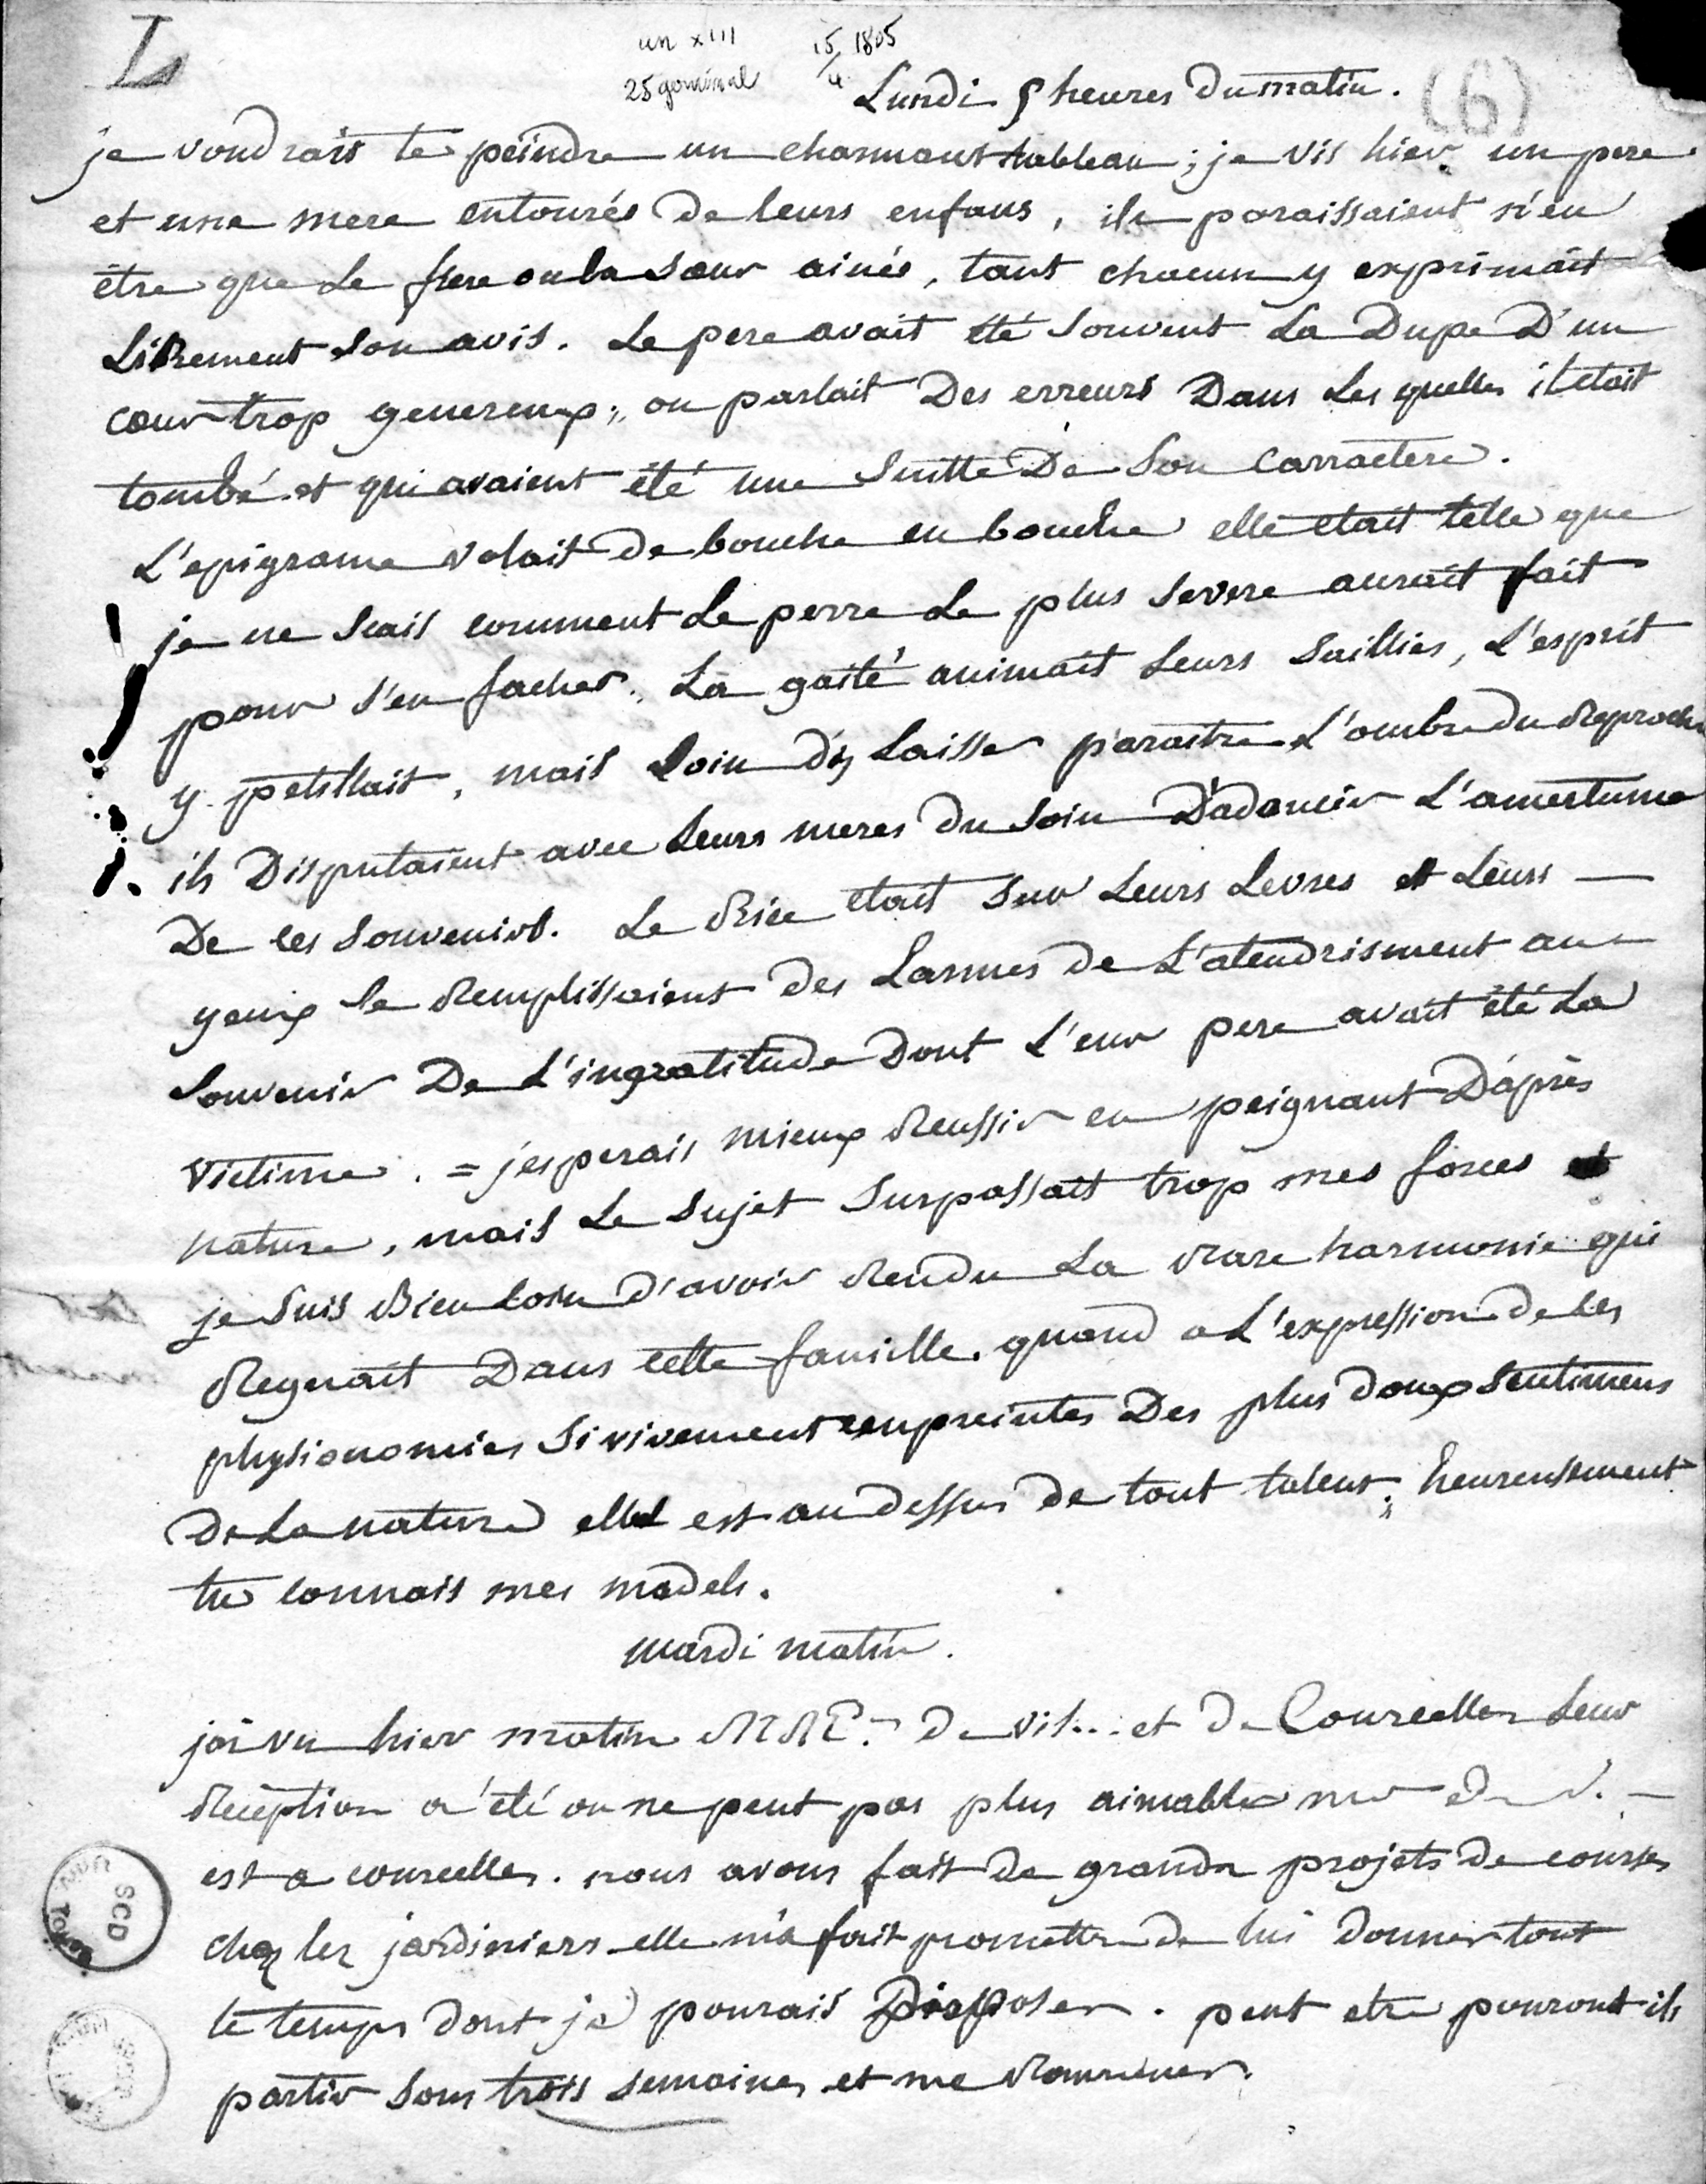 L
an XIII 15/4 1805
25 germinal
(6)
Lundi 5 heures du matin.
je voudrais te peindre un charmant tableau ; je vis hier un pere
et une mere entourés de leurs enfans, ils paraissaient n'en
être que le frere ou la sœur ainés, tant chacun y exprimait
Librement son avis. Le pere avait été souvent La Dupe D'un
cœur trop genereux ; on parlait Des erreurs Dans Les quelles il etait
tombé et qui avaient été une suitte De son carractere.
L'epigrame volait de bouche en bouche elle etait telle que
je ne scais comment Le perre Le plus severe auroit fait
pour s'en facher. La gaité animait Leurs saillies, L'esprit
y petillait, mais Loin d'y Laisser paraitre L'ombre du Reproche
ils Disputaient avec Leurs meres du soin D'adoucir L'amertume
De ces souvenirs. Le Rire etait sur Leurs Levres et Leurs —
yeux se Remplissaient Des Larmes de L'atendrisment au
souvenir De L'ingratitude Dont L'eur pere avait été La
victime. = j'esperais mieux Reussir en peignant D'après
nature, mais Le sujet surpassait trop mes forces et
je suis Bien Loin d'avoir Rendu La Rare harmonie qui
Regnait Dans cette famille. quand a L'expression de ces
physionomies si vivement empreintes Des plus doux sentimens
De La nature elle est au dessus de tout talent ; heureusement
tu connais mes models.
mardi matin.
jai vu hier matin MMe. de vil... et de Courcelles Leur
Reception a été on ne peut pas plus aimable mr de V. —
est a courcelles. nous avons fait de grands projets de courses
chez les jardiniers elle m'a fait promettre de lui donner tout
le temps dont je pourais Disposer. peut etre pouront ils
partir sous trois semaines et me Ramener.
SCD
TOURS